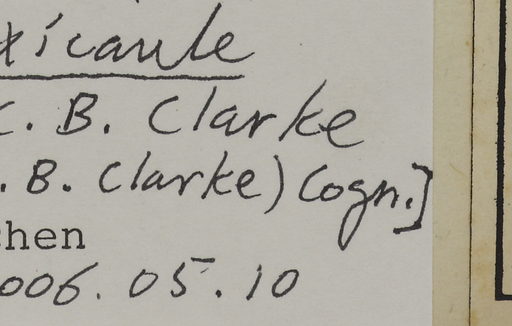 ticaule
C. B. Clarke
. B. Clarke) Cogn.]
chen
006. 05. 10